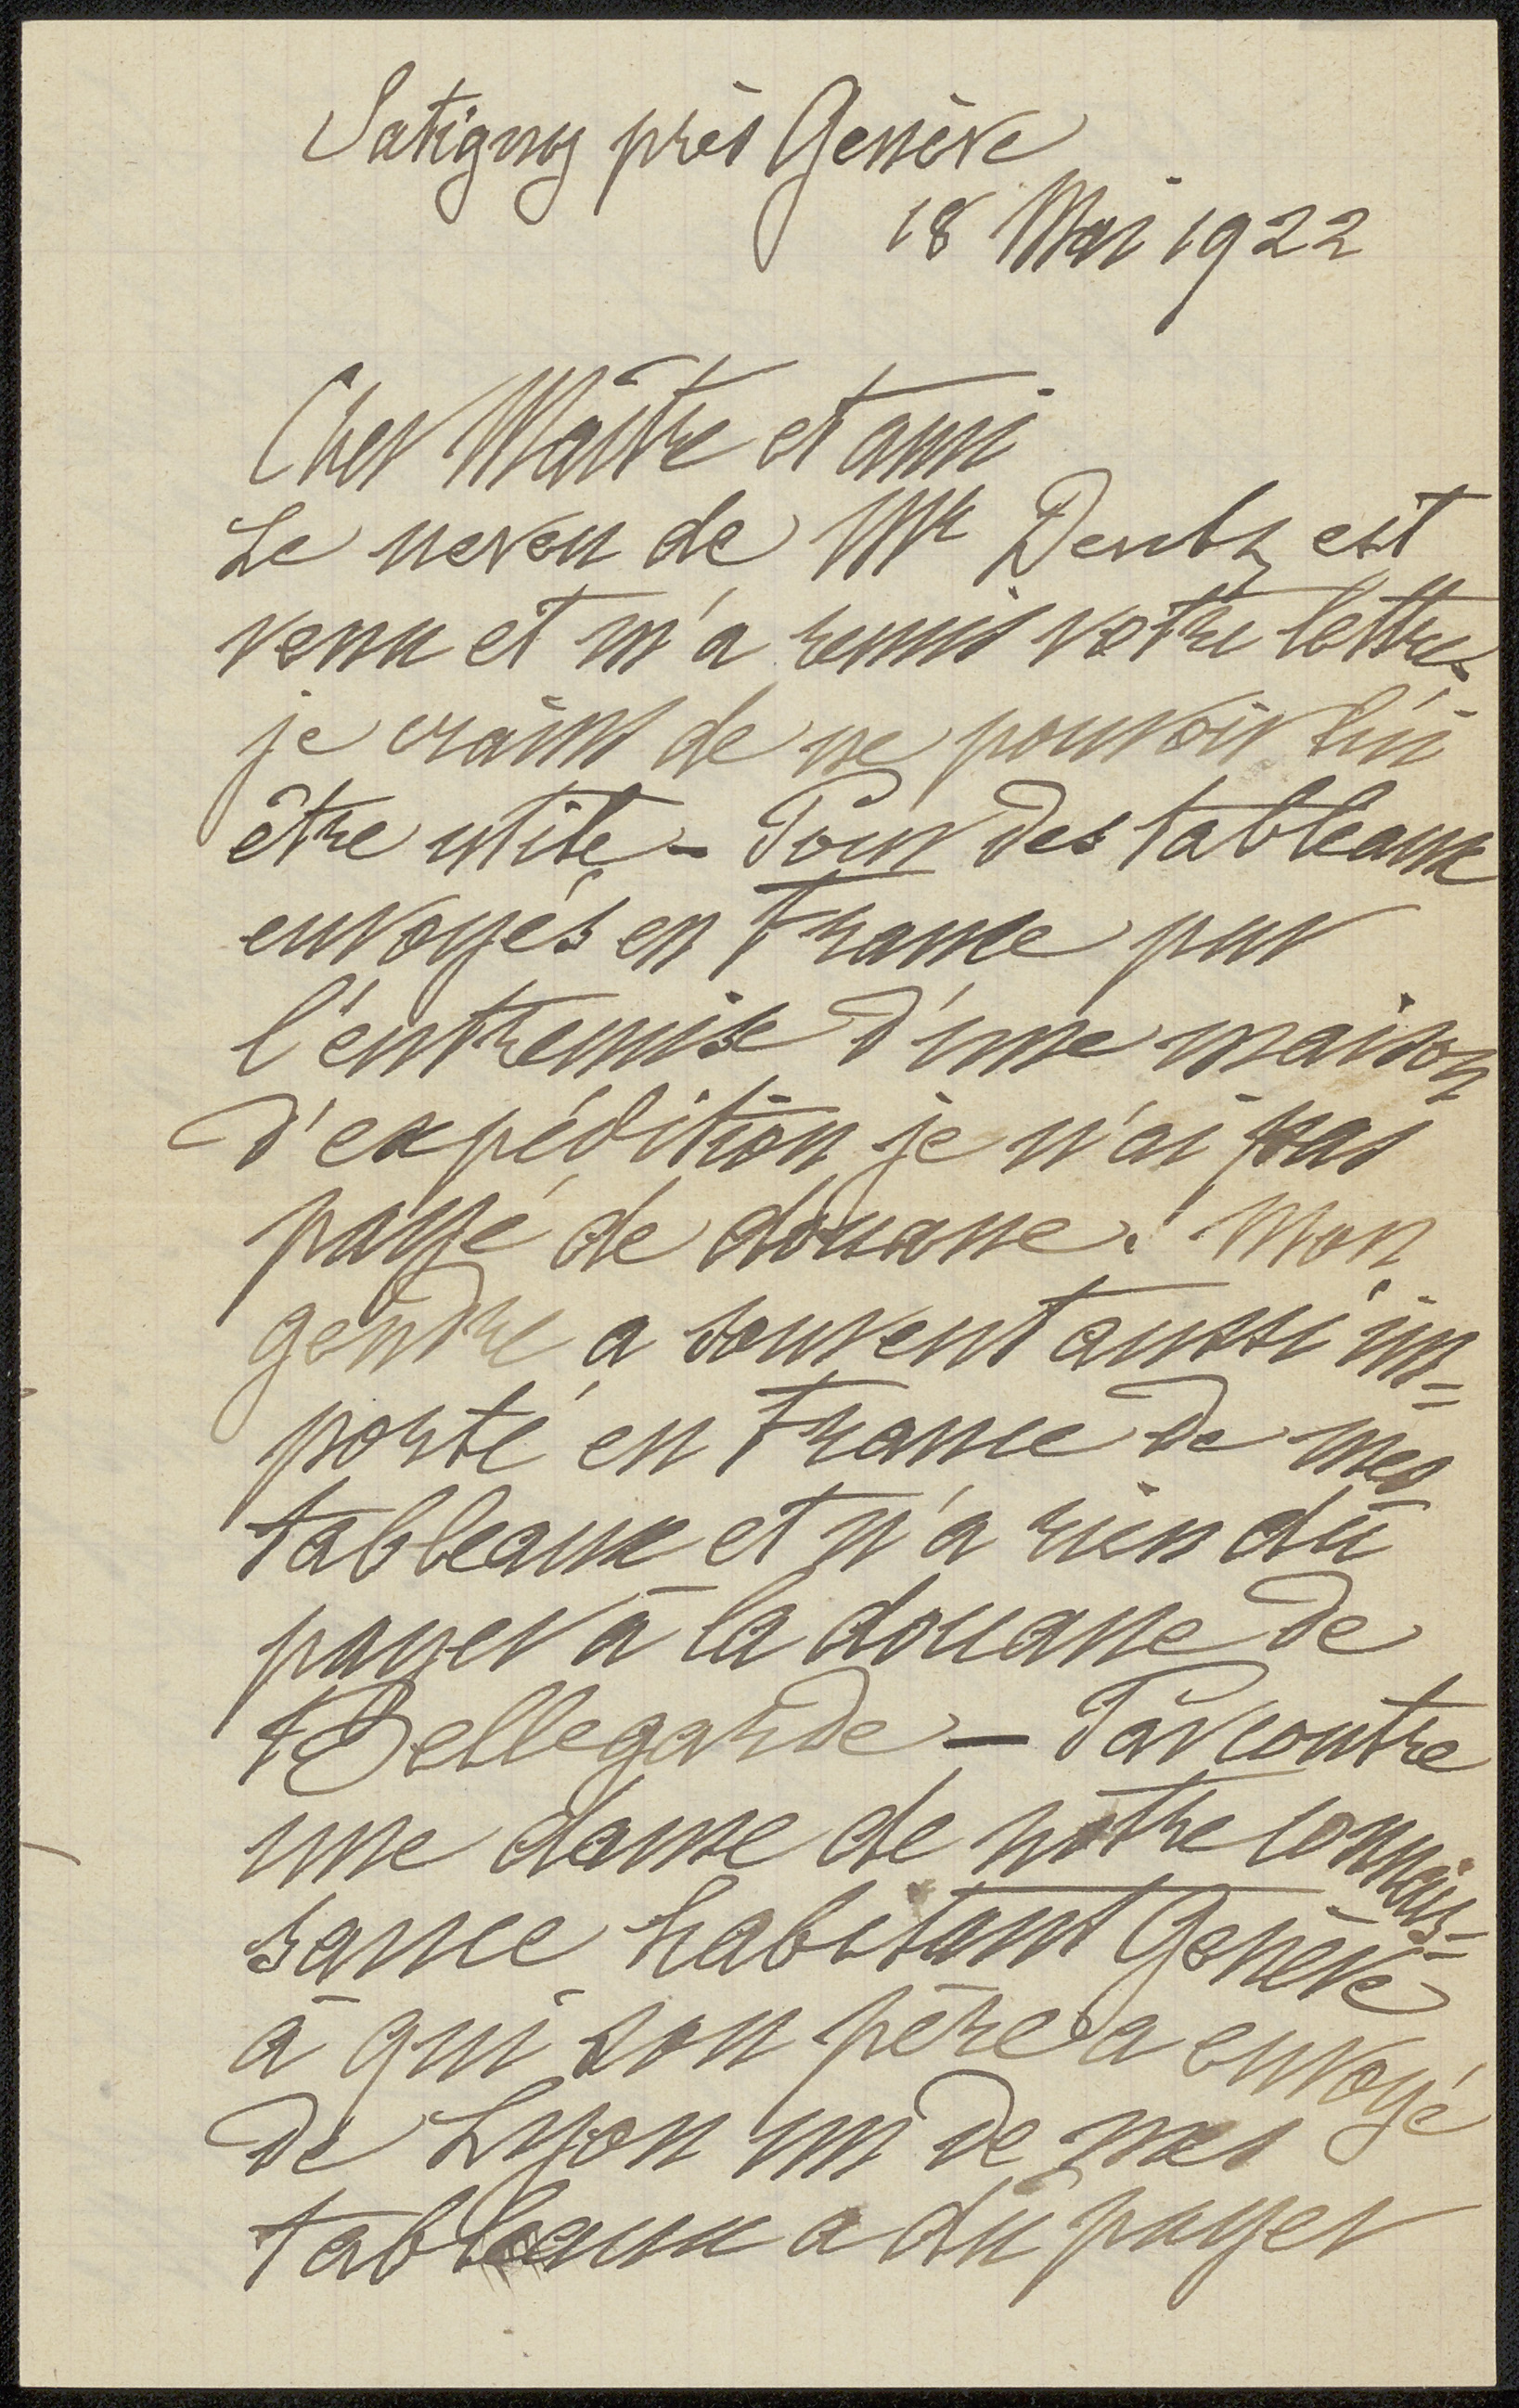 Satigny près Genève
18 Mai 1922
Cher Maître et ami
Le neveu de Mr est
venu et m'a remis votre lettre.
je crains de ne pouvoir lui
être utile – Pour des tableaux
envoyés en France par
l'entremise d'une maison
d'expédition je n'ai pas
payé de douane. Mon
gendre a souvent aussi im=
porté en France de mes
tableaux et n'a rien dû
payer à la douane de
Bellegarde – Par contre
une dame de notre connais=
sance habitant Genève
à qui son père a envoyé
de Lyon un de mes
tableaux a dû payer